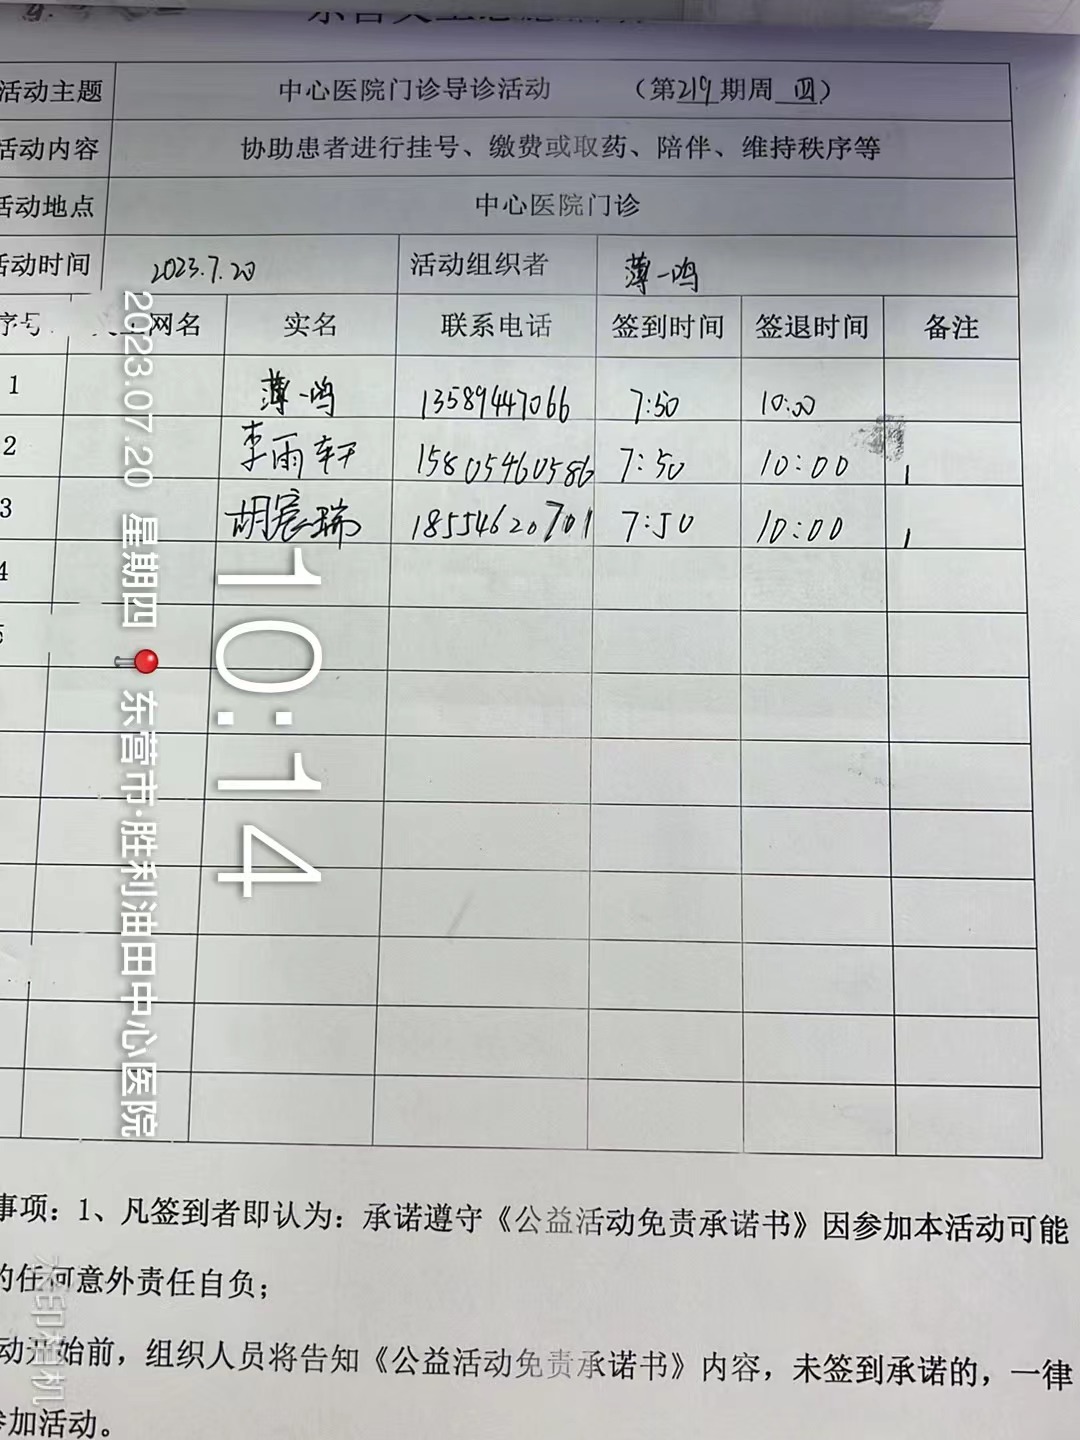 活动主题 中心医院门诊导诊活动 （第219期周四）
活动内容 协助患者进行挂号、缴费或取药、陪伴、维持秩序等
活动地点 中心医院门诊
活动时间 2023.7.20 活动组织者 薄一鸣
序号 网名 实名 联系电话 签到时间 签退时间 备注
1 薄一鸣 13589447066 7:50 10:00
2 李雨轩 15805460586 7:50 10:00
3 胡宸瑞 18554620701 7:50 10:00
4
5
2023.07.20 星期四 📍东营市·胜利油田中心医院
10:14
事项：1、凡签到者即认为：承诺遵守《公益活动免责承诺书》因参加本活动可能
的任何意外责任自负；
动开始前，组织人员将告知《公益活动免责承诺书》内容，未签到承诺的，一律
参加活动。
水印相机